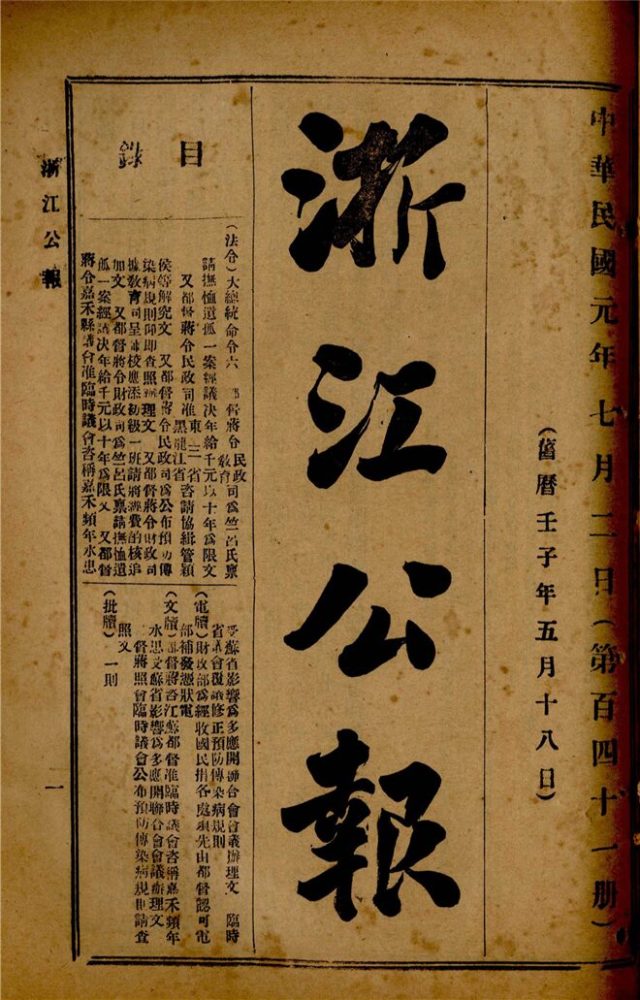 中華民國元年七月二日（第百四十一册）
（舊曆壬子年五月十八日）
浙江公報
目錄
（法令）大總統命令六　都督蔣令民政教育司爲竺呂氏稟
請撫恤遺孤一案經議决年給千元以十年爲限文
又都督蔣令民政司准東三省黑龍江省咨請協緝管穎
侯等解究文　又都督蔣令民政司爲公布預防傳
染病規則仰即查照辦理文　又都督蔣令財政司
據教育司呈　校應添初級一班請將經費的核追
加文　又都督蔣令財政司爲竺呂氏稟請撫恤遺
孤一案經議决年給千元以十年爲限文　又都督
蔣令嘉禾縣議會准臨時議會咨稱嘉禾頻年水患
受蘇省影響爲多應開聯合會會議辦理文　臨時
省議會覆議修正預防傳染病規則
（電牘）財政部爲經收國民捐各處須先由都督認可電
部補發憑狀電
（文牘）都督蔣咨江蘇都督准臨時議會咨稱嘉禾頻年
水患受蘇省影響爲多應開聯合會會議辦理文
督蔣照會臨時議會公布預防傳染病規則請查
照文
（批牘）一則
浙江公報
一